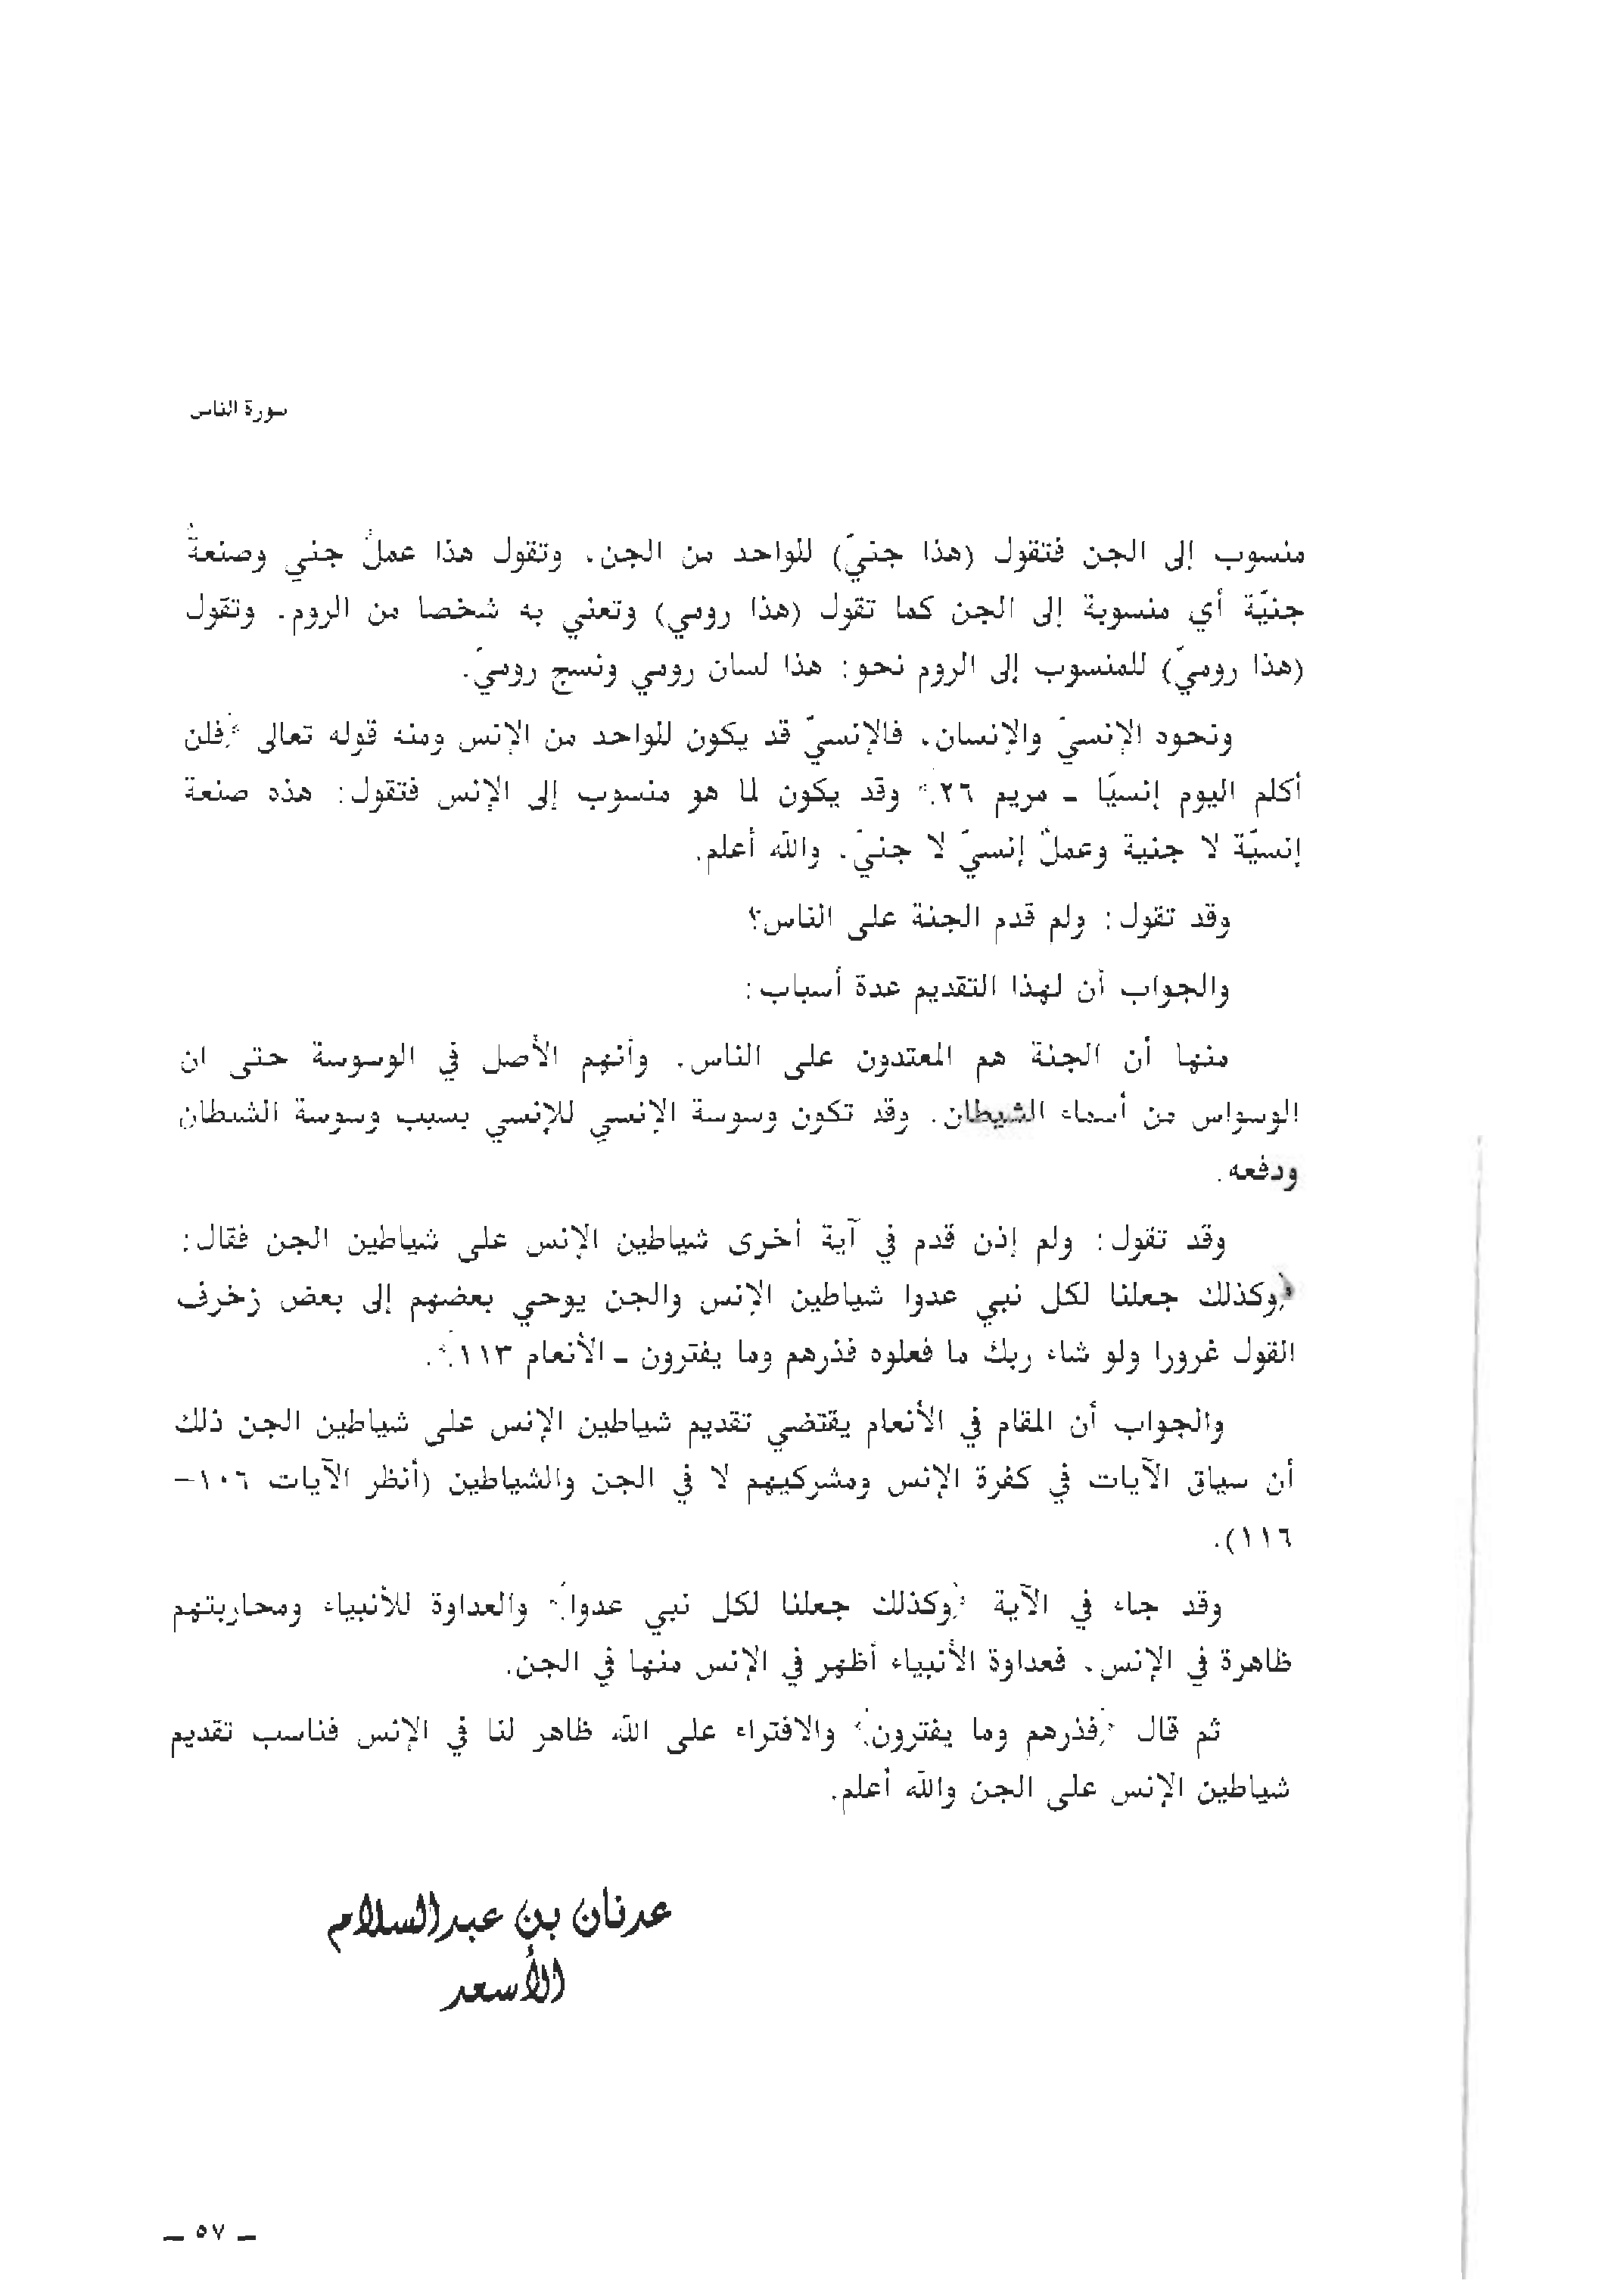 سورة الناس
منسوب إلى الجن فتقول (هذا جنيّ) للواحد من الجن. وتقول هذا عملٌ جني وصنعةٌ
جنيّة أي منسوبة إلى الجن كما تقول (هذا رومي) وتعني به شخصا من الروم. وتقول
(هذا روميّ) للمنسوب إلى الروم نحو: هذا لسان رومي ونسج روميّ.
ونحوه الإنسيّ والإنسان. فالإنسيّ قد يكون للواحد من الإنس ومنه قوله تعالى ﴿فلن
أكلم اليوم إنسيّا ـ مريم ٢٦﴾ وقد يكون لما هو منسوب إلى الإنس فتقول: هذه صنعة
إنسيّة لا جنية وعملٌ إنسيّ لا جنيّ. والله أعلم.
وقد تقول: ولم قدم الجنة على الناس؟
والجواب أن لهذا التقديم عدة أسباب:
منها أن الجنة هم المعتدون على الناس. وأنهم الأصل في الوسوسة حتى ان
الوسواس من أسماء الشيطان. وقد تكون وسوسة الإنسي للإنسي بسبب وسوسة الشيطان
ودفعه.
وقد تقول: ولم إذن قدم في آية أخرى شياطين الإنس على شياطين الجن فقال:
﴿وكذلك جعلنا لكل نبي عدوا شياطين الإنس والجن يوحي بعضهم إلى بعض زخرف
القول غرورا ولو شاء ربك ما فعلوه فذرهم وما يفترون ـ الأنعام ١١٣﴾.
والجواب أن المقام في الأنعام يقتضي تقديم شياطين الإنس على شياطين الجن ذلك
أن سياق الآيات في كفرة الإنس ومشركيهم لا في الجن والشياطين (أنظر الآيات ١٠٦–
١١٦).
وقد جاء في الآية ﴿وكذلك جعلنا لكل نبي عدوا﴾ والعداوة للأنبياء ومحاربتهم
ظاهرة في الإنس. فعداوة الأنبياء أظهر في الإنس منها في الجن.
ثم قال ﴿فذرهم وما يفترون﴾ والافتراء على الله ظاهر لنا في الإنس فناسب تقديم
شياطين الإنس على الجن والله أعلم.
عدنان بن عبدالسلام
الأسعد
ـ ٥٧ ـ